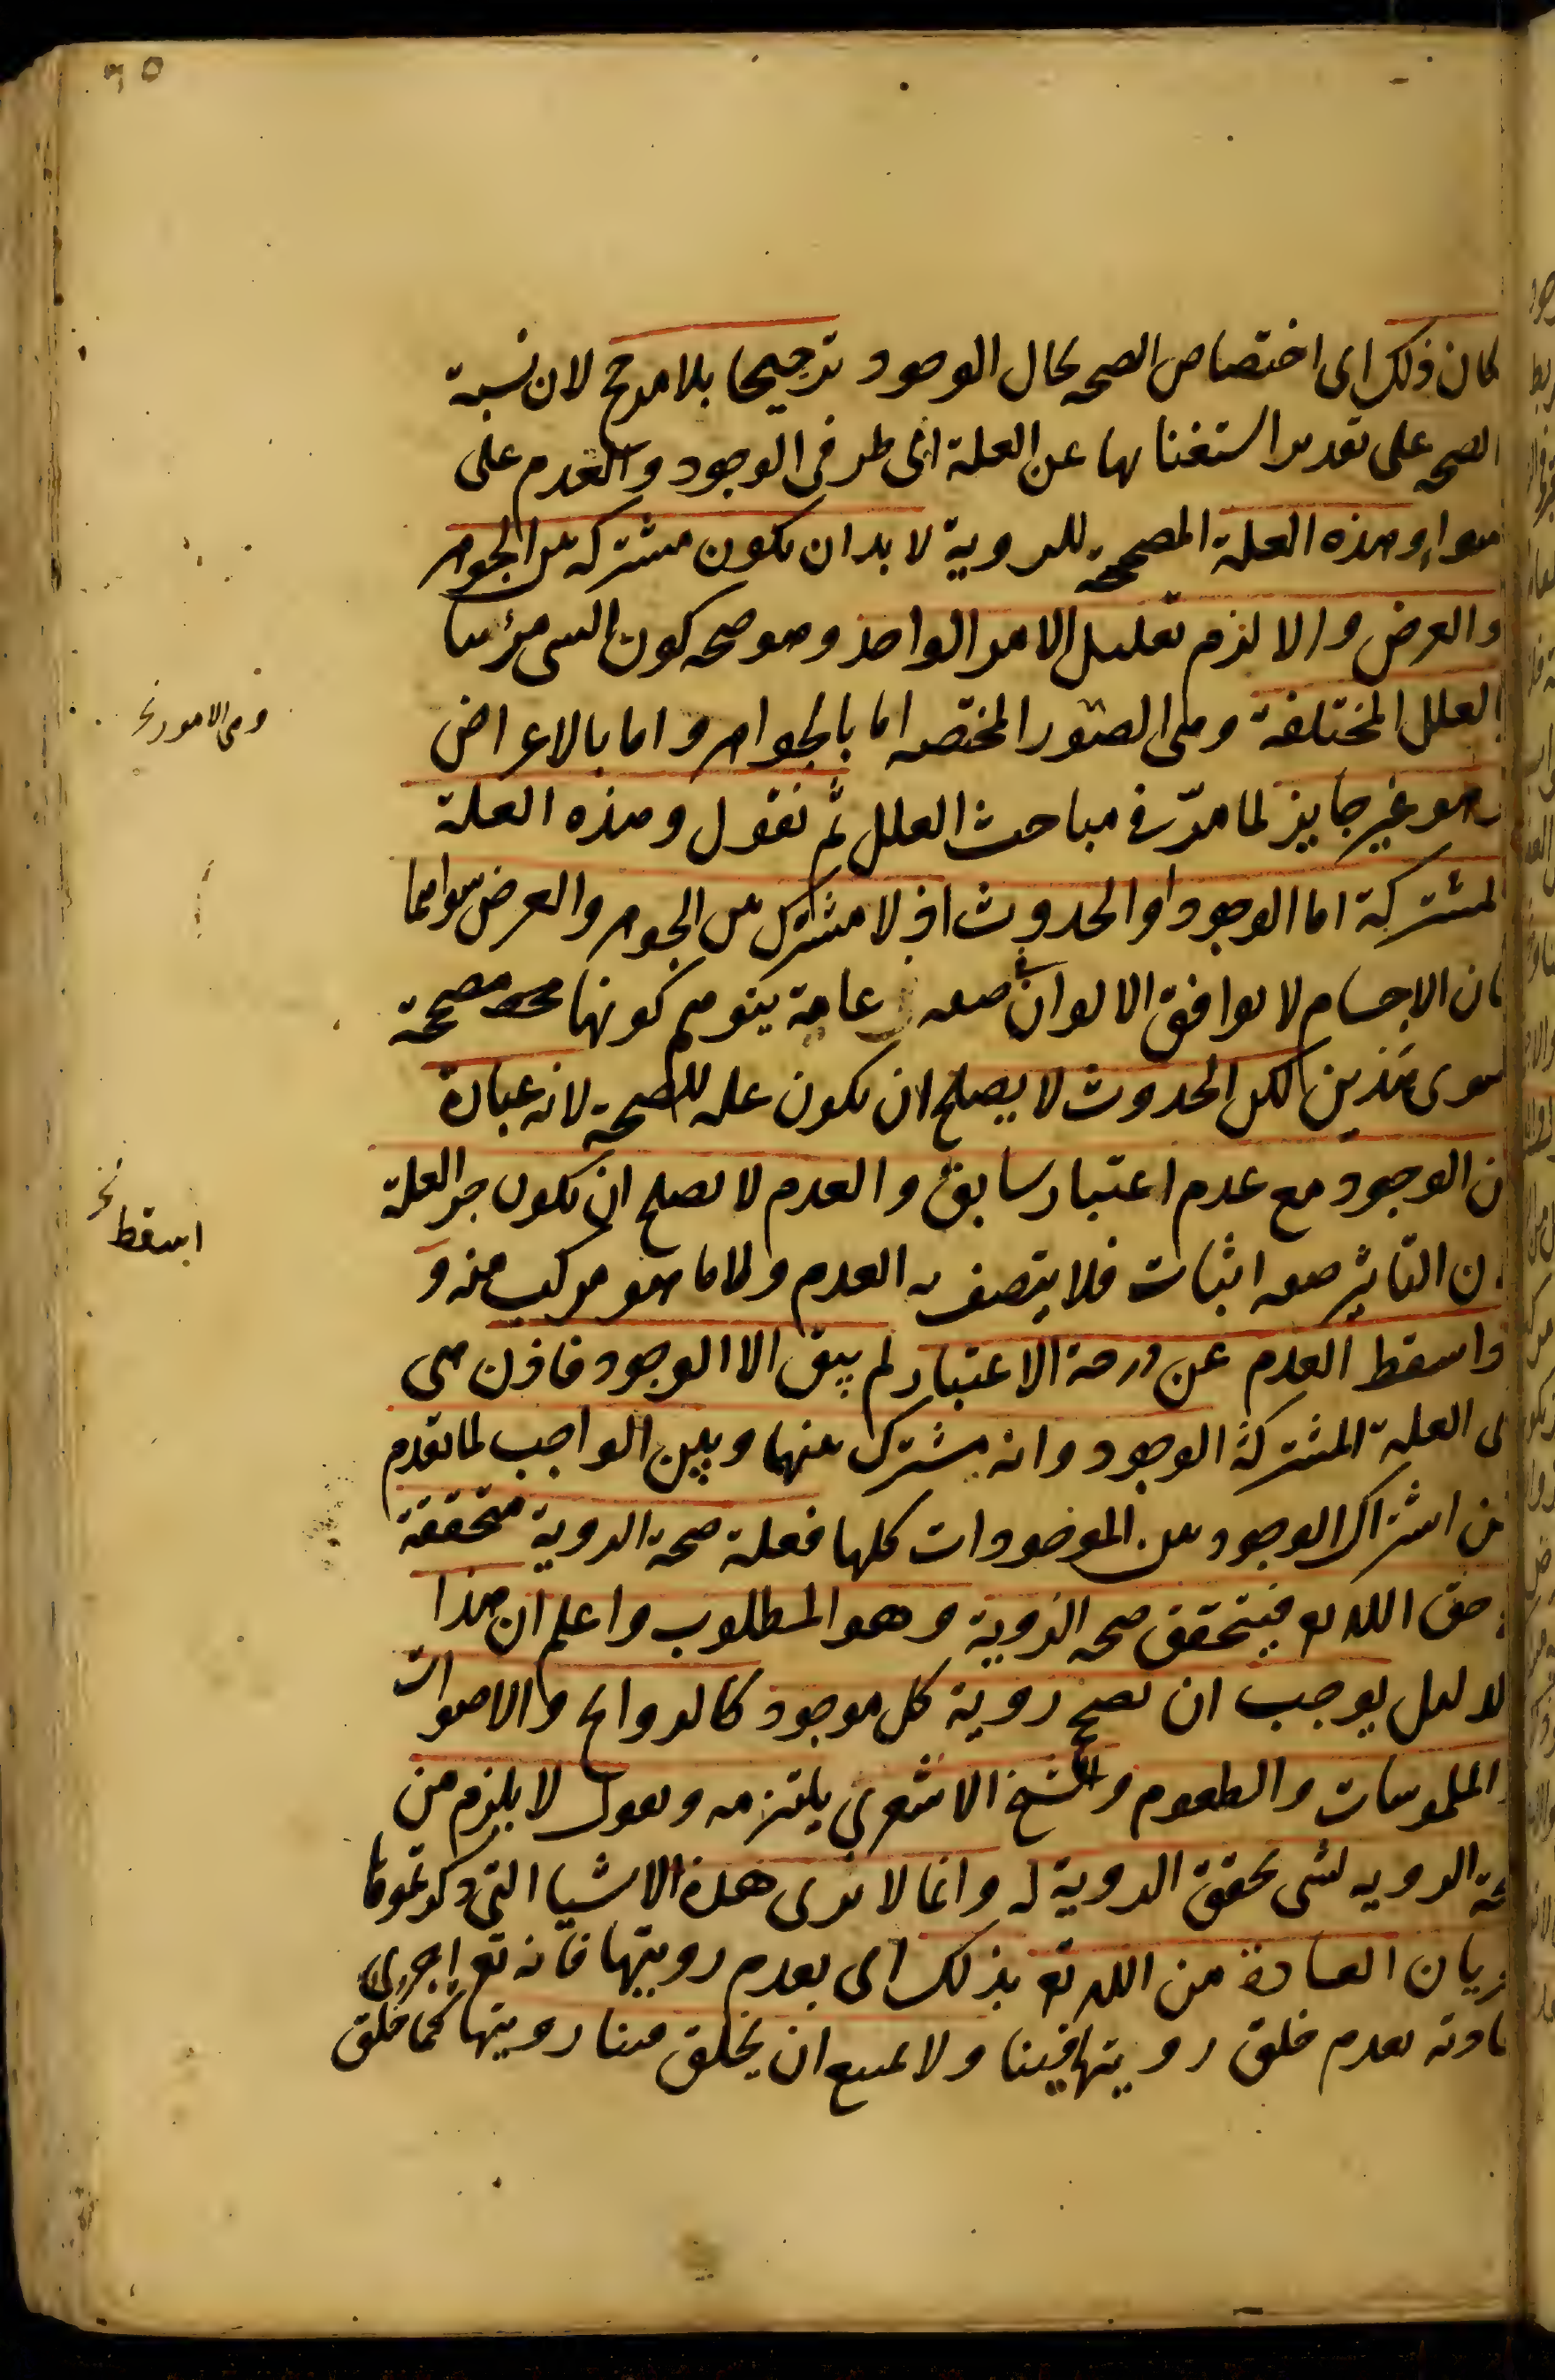 لكان ذلك اى اختصاص الصحه بحال الوجود ترجيحا بلا مرجح لان نسبة
الصحه على تقدير استغنائها عن العلة الى طرفى الوجود والعدم على
سواء وهذه العلة المصححة للروية لا بد ان يكون مشتركه بين الجوهر
والعرض والا لزم تعليل الامر الواحد وهو صحه كون الشى مرئيا
بالعلل المختلفة وهى الصور المختصه اما بالجواهر واما بالاعراض
وهى الامور نخ
وهو غير جايز لما مرّ فى مباحث العلل ثم نقول وهذه العلة
المشتركة اما الوجود او الحدوث اذ لا مشترك بين الجوهر والعرض سواهما
فان الاجسام لا يوافق الالوان فى صفه عامة يتوهم كونها مصححة
سوى هذين لكن الحدوث لا يصلح ان يكون عله للصحة لانه عبارة
عن الوجود مع عدم اعتبار سابق والعدم لا يصلح ان يكون جز العلة
لان التاثير صفه اثبات فلا يتصف به العدم ولا ما هو مركب منه و
اسقط نخ
واسقط العدم عن درجة الاعتبار لم يبق الا الوجود فاذن هى
اى العلة المشتركة الوجود وانه مشترك بينهما وبين الواجب لما تقدم
من اشتراك الوجود بين الموجودات كلها فعلة صحة الروية متحققة
حق الله تع فيتحقق صحه الروية وهو المطلوب واعلم ان هذا
الدليل يوجب ان يصح روية كل موجود كالروايح والاصوات
والملموسات والطعوم والشيخ الاشعرى يلتزمه ويقول لا يلزم من
صحة الرويه لشى تحقق الروية له وانما لا نرى هذه الاشيا التى ذكرتموها
لجريان العادة من الله تع بذلك اى بعدم رويتها فانه تع اجرى
عادته بعدم خلق رويتها فينا ولا يمتنع ان يخلق فينا رويتها كما خلق